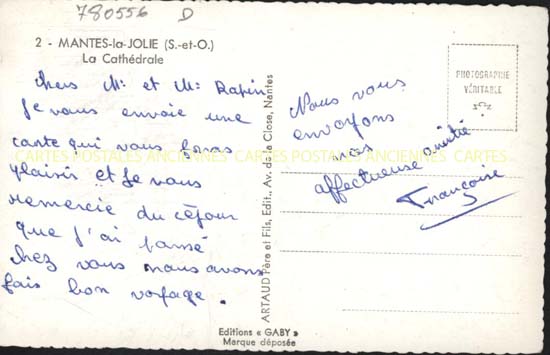 780556 D
2 - MANTES-la-JOLIE (S.-et-O.)
La Cathédrale
chers Mr et Me Rapin
Je vous envoie une
carte qui vous feras
plaisir et Je vous
remercie du céjour
que j'ai passé
chez vous nous avons
fais bon voyage.
ARTAUD Père et Fils, Edit., Av. de la Close, Nantes
PHOTOGRAPHIE
VÉRITABLE
Nous vous
envoyons
nos
affectueuse amitié
Françoise
CARTES POSTALES ANCIENNES CARTES POSTALES ANCIENNES CARTES
Editions « GABY »
Marque déposée